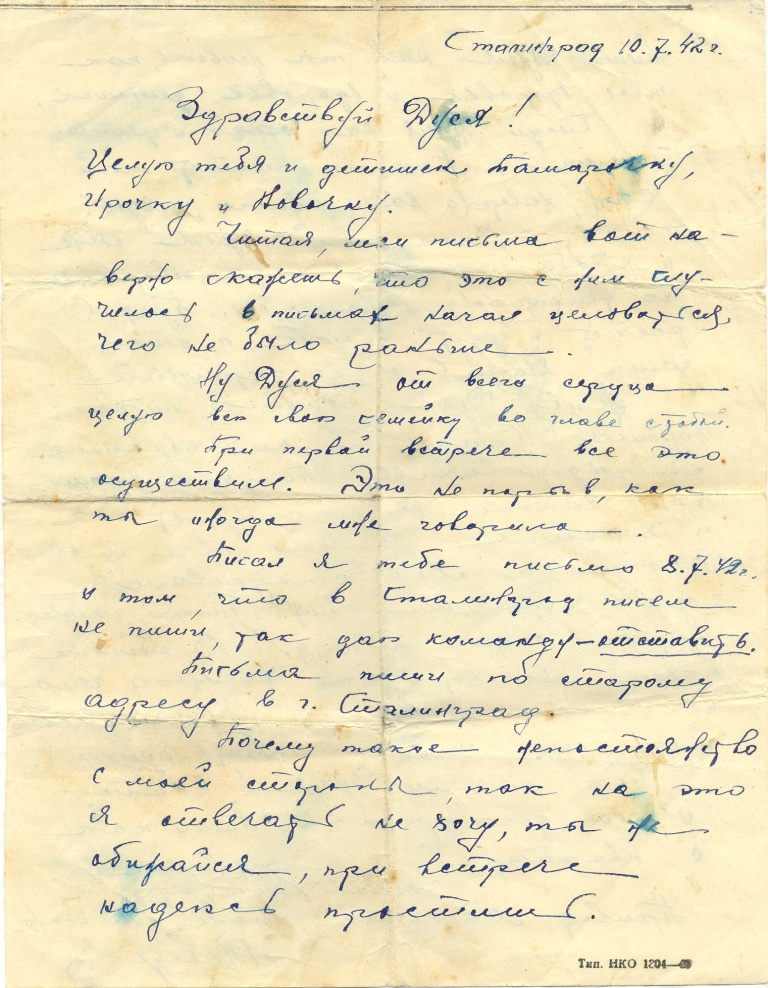 Сталинград 10.7.42 г.
Здравствуй Дуся!
Целую тебя и детишек Тамарочку,
Ирочку и Вовочку.
Читая, мои письма вот на-
верно скажешь, что это с ним слу-
чилось в письмах начал целоваться,
чего не было раньше.
Ну Дуся от всего сердца
целую всю свою семейку во главе с тобой.
При первой встрече все это
осуществим. Это не порыв, как
ты иногда мне говорила.
Писал я тебе письмо 8.7.42г.
о том, что в Сталинград писем
не пиши, так даю команду – отставить.
Письма пиши по старому
адресу в г. Сталинград.
Почему такое непостоянство
с моей стороны, так на это
я отвечать не хочу, ты не
обижайся, при встрече
надеюсь простишь.
Тип. НКО 1304—